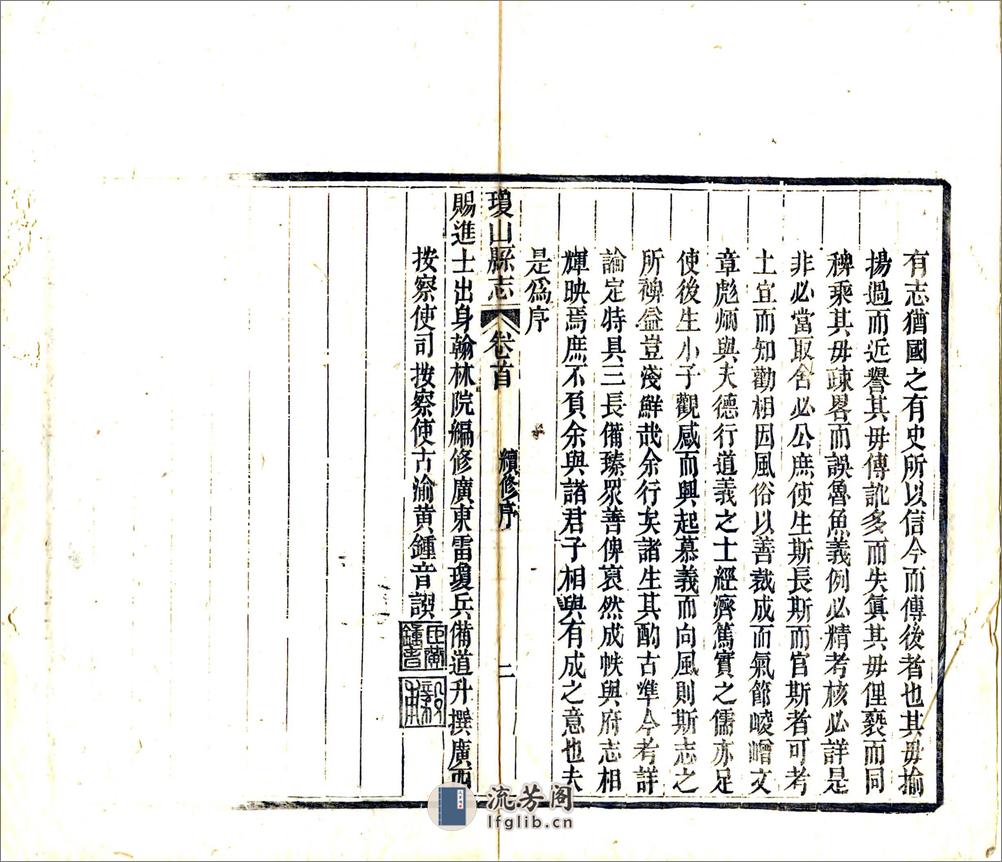 有志猶國之有史所以信今而傳後者也其毋揄
揚過而近譽其毋傳訛多而失眞其毋俚褻而同
稗乘其毋疎畧而誤魯魚義例必精考核必詳是
非必當取舍必公庶使生斯長斯而官斯者可考
土宜而知勸相因風俗以善裁成而氣節崚嶒文
章彪炳與夫德行道義之士經濟篤實之儒亦足
使後生小子觀感而興起慕義而向風則斯志之
所裨益豈淺鮮哉余行矣諸生其酌古準今考詳
論定特具三長備臻眾善俾裒然成帙與府志相
輝映焉庶不負余與諸君子相與有成之意也夫
是爲序
瓊山縣志 卷首 續修序 二
賜進士出身翰林院編修廣東雷瓊兵備道升撰廣西
按察使司按察使古渝黄鍾音譔
流芳阁
lfglib.cn